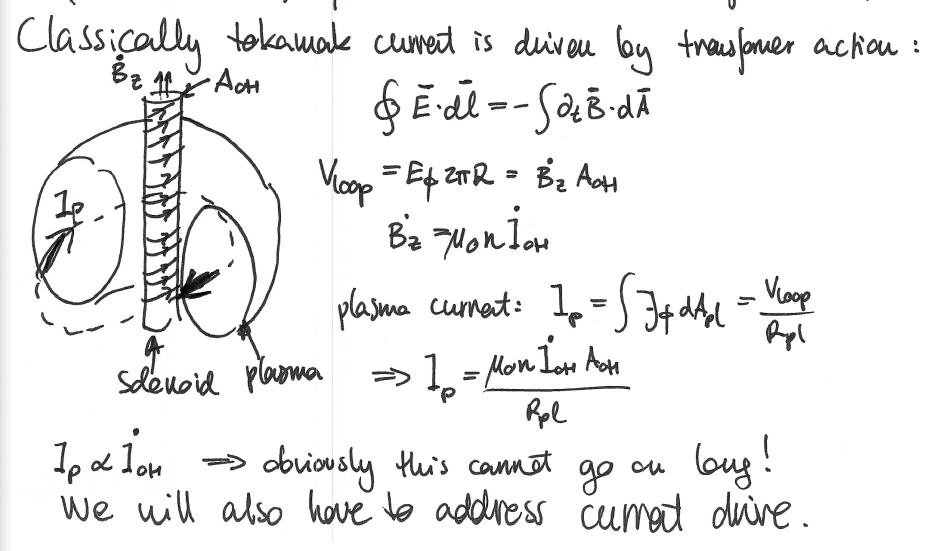 Classically tokamak current is driven by transformer action :
Ḃz
A_OH
∮ Ē·dl̄ = - ∫ ∂ₜB̄·dĀ
V_loop = E_ϕ 2πR = Ḃ_z A_OH
I_p
Ḃ_z = μ₀ n İ_OH
plasma current: I_p = ∫ J_ϕ dA_pl = V_loop / R_pl
solenoid plasma
⇒ I_p = μ₀ n İ_OH A_OH / R_pl
I_p ∝ İ_OH ⇒ obviously this cannot go on long!
We will also have to address current drive.